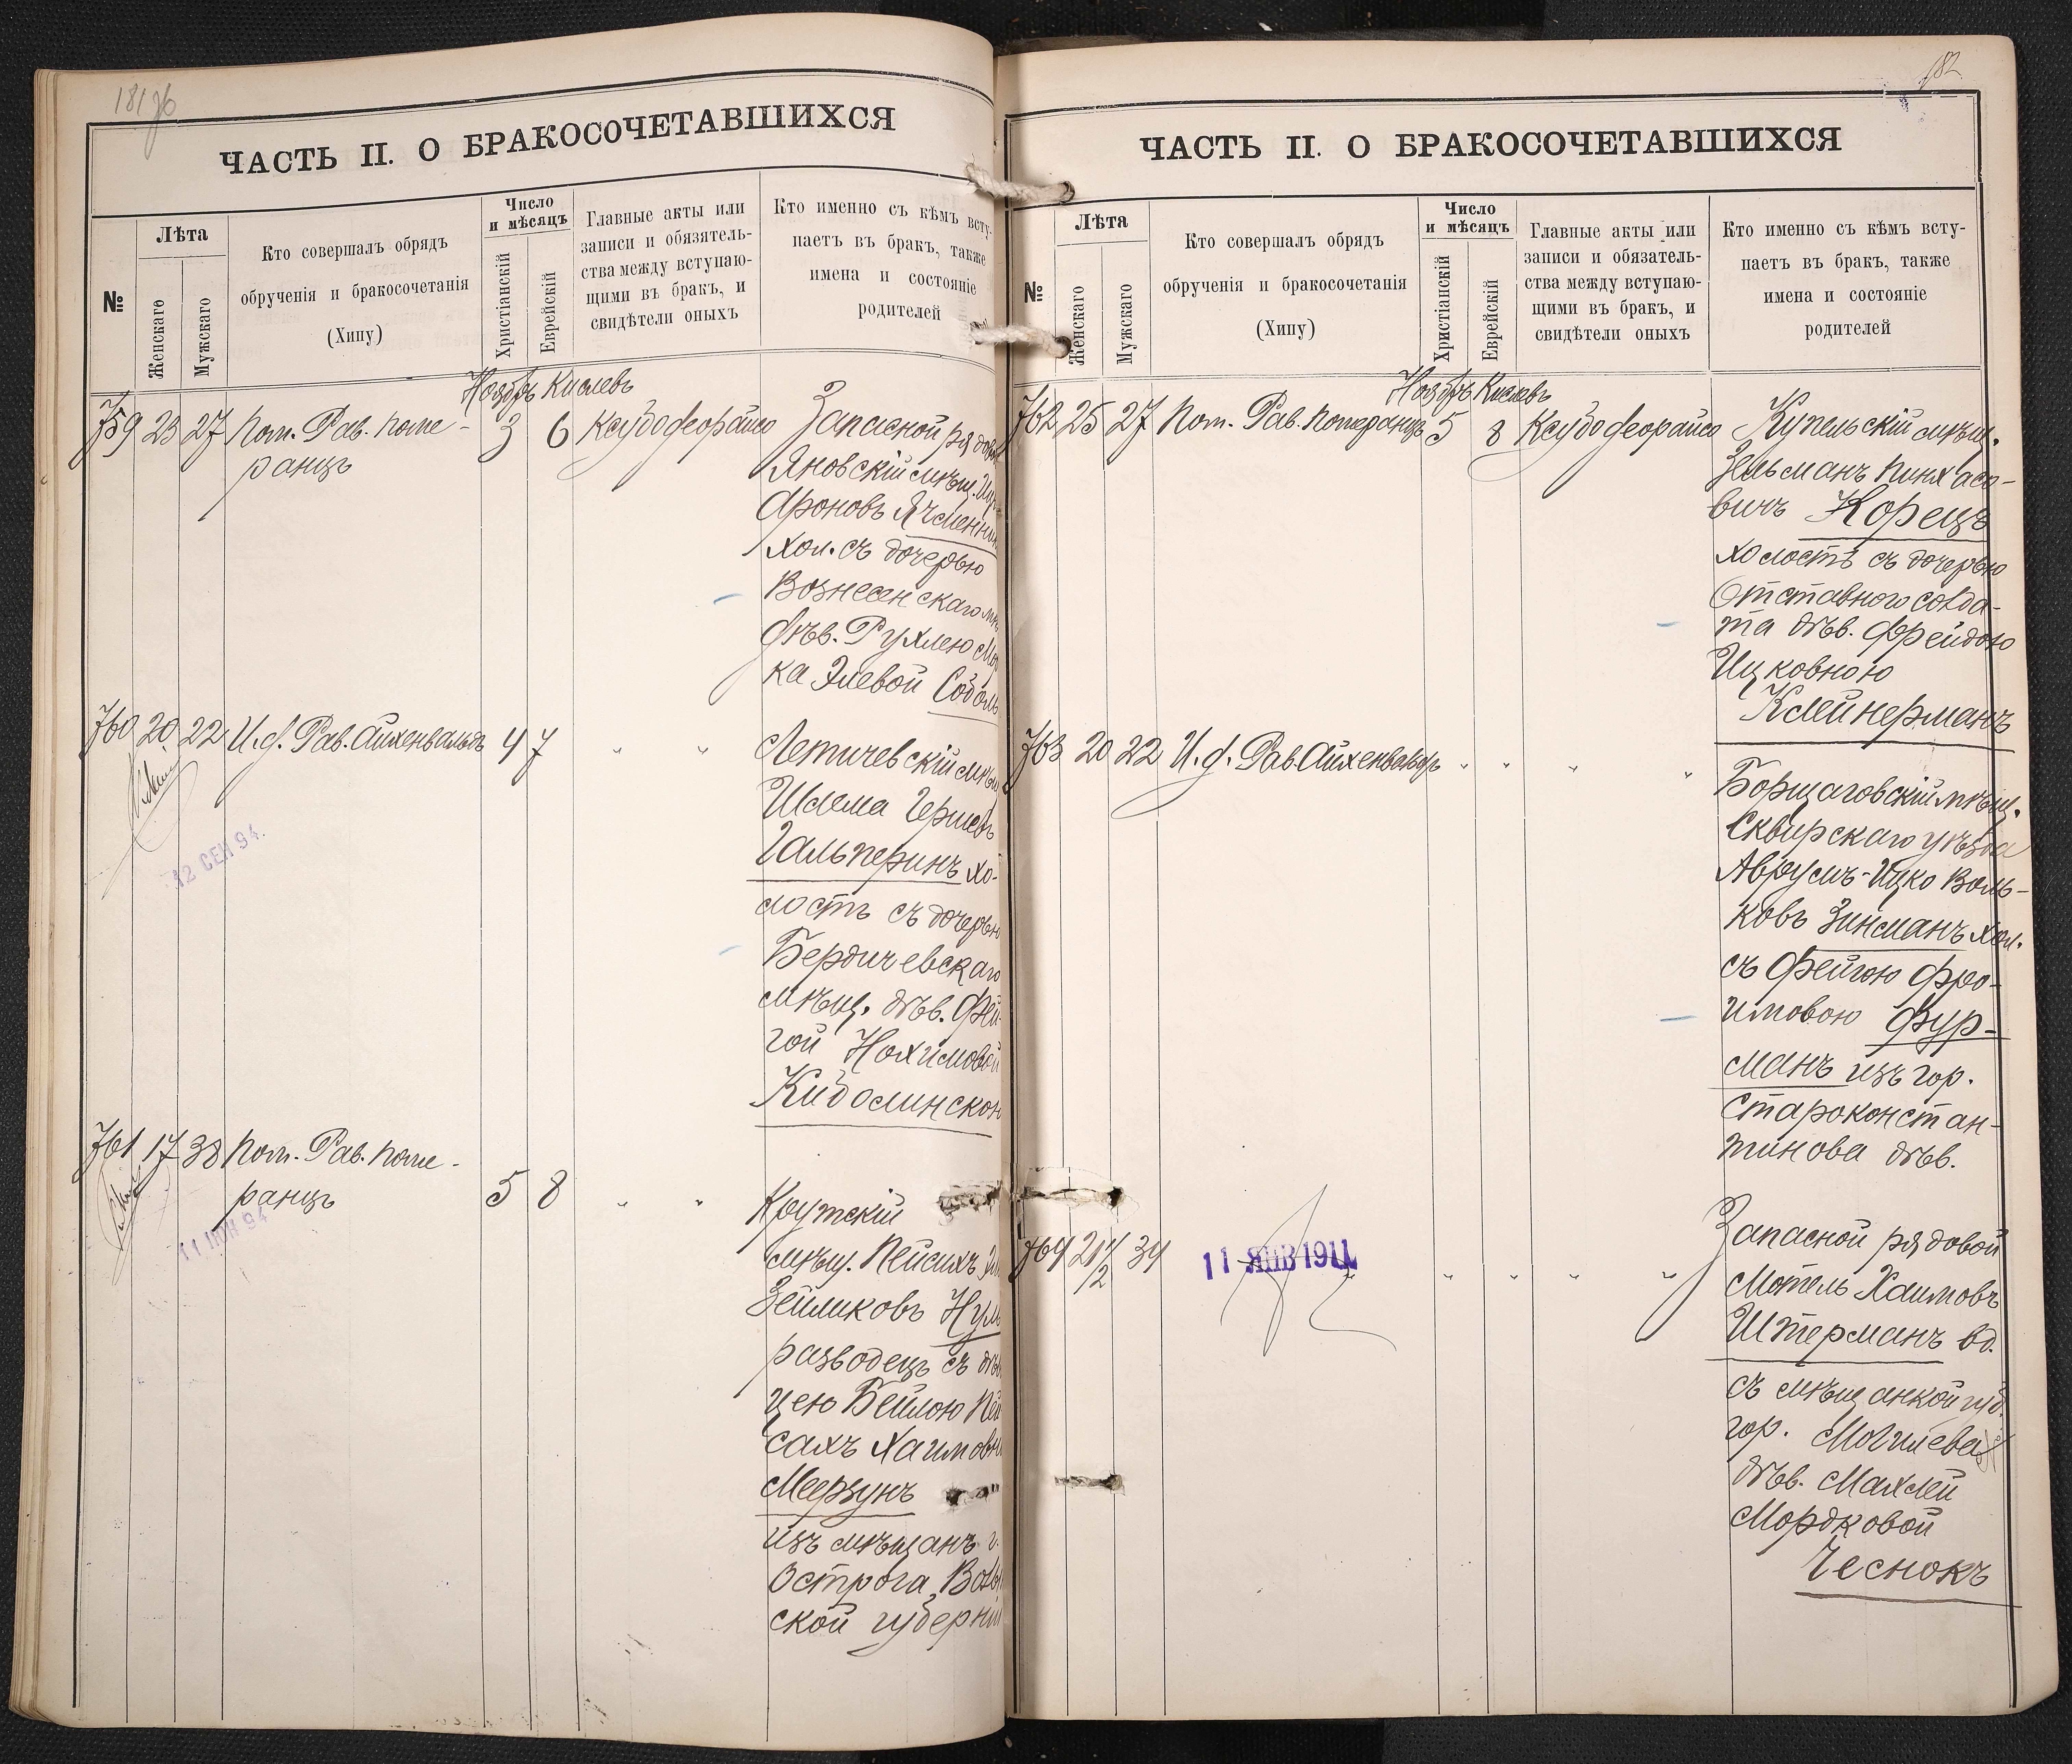 181 об
ЧАСТЬ II. О БРАКОСОЧЕТАВШИХСЯ
№
Лѣта
Женскаго
Мужскаго
Кто совершалъ обрядъ
обрученія и бракосочетанія
(Хипу)
Число
и мѣсяцъ
Христіанскій
Еврейскій
Главные акты или
записи и обязатель-
ства между вступаю-
щими въ бракъ, и
свидѣтели оныхъ
Кто именно съ кѣмъ всту-
паетъ въ бракъ, также
имена и состояніе
родителей
Ноябрь Кислевъ
759 23 27 Пом. Рав. Поме-
ранцъ
3 6 Ксудофеорайсо
Запасной рядов
Яновскій мѣщ.
Ароновъ Ячменн
хол. съ дочерью
Вознесенскаго мѣ
дѣв. Рухлею
ка Элевой Соболь
760 20 22 И.д. Рав. Айхенвальдъ 4 7 " "
12 СЕН 94.
Летичевскій мѣщ
Шлема Гершевъ
Гальперинъ хо-
лостъ съ дочерью
Бердичевскаго
мѣщ. дѣв. Фей-
гой Нохимовой
Кидолинскою
761 17 38 Пом. Рав. Поме-
ранцъ
5 8 " "
11 ІЮН 94
Крутскій
мѣщ. Пейсихъ
Зейликовъ Нуль
разводецъ съ дѣв
цею Бейлою Пей
сахъ Хаимовн
Меерзунъ
изъ мѣщанъ г.
Острога, Волы
ской губерніи
182
ЧАСТЬ II. О БРАКОСОЧЕТАВШИХСЯ
№
Лѣта
Женскаго
Мужскаго
Кто совершалъ обрядъ
обрученія и бракосочетанія
(Хипу)
Число
и мѣсяцъ
Христіанскій
Еврейскій
Главные акты или
записи и обязатель-
ства между вступаю-
щими въ бракъ, и
свидѣтели оныхъ
Кто именно съ кѣмъ всту-
паетъ въ бракъ, также
имена и состояніе
родителей
Ноябрь Кислевъ
762 25 27 Пом. Рав. Померанцъ 5 8 Ксудофеорайсо
Купельскій мѣщ.
Зельманъ Пинхасо-
вичъ Корецъ
холостъ съ дочерью
Отставного солда-
та дѣв. Фрейдою
Ицковною
Клейнерманъ
763 20 22 И.д. Рав. Айхенвальдъ " " " "
Борщаговскій мѣщ.
Сквирскаго уѣзда
Аврумъ-Ицко Воль-
ковъ Зинманъ хол.
съ Фейгою Фро-
имовою Фур-
манъ изъ гор.
Староконстан-
тинова дѣв.
764 21 1/2 34 " " " " "
11 ЯНВ 1911
Запасной рядовой
Мотель Хаимовъ
Штерманъ вд.
съ мѣщанкой губ.
гор. Могилева
дѣв. Махлей
Мордковой
Чеснокъ